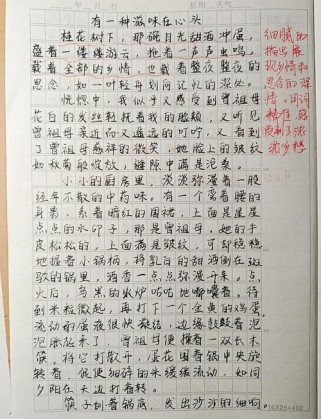 年 月 日 星期 天气
有一种滋味在心头
桂花树下，那碗月无甜酒冲蛋
盛着一缕缕浮云，抱着一声声虫鸣，
载着全部的乡情，也载着整夜整夜的
思念，如一叶轻舟划向记忆的深处。
恍惚中，我似乎又感受到曾祖母
花白的发丝轻抚着我的脸颊，又听见
曾祖母亲近而又遥远的叮咛，又看到
了曾祖母慈祥的微笑，她脸上的皱纹
如秋菊般绽放，缝隙中满是沧桑。
小小的厨房里，淡淡弥漫着一股
经年不散的中药味。有一个弯着腰的
身影，系着暗红的围裙，上面是星星
点点的水印子，那是曾祖母，她的手
皮松松的，上面满是皱纹，可却稳稳
地握着小锅柄，将乳白的甜酒倒在斑
驳的锅里，酒香一点点弥漫开来。点
火后，乌黑的火炉咕咕地嘟囔着，待
到米粒微起，再打下一个金黄的鸡蛋，
流动的蛋液很快凝结，边缘鼓鼓着泡
泡胀起来了，曾祖母便摸着一双长木
筷，将它打散开，蛋花围着锅中央旋
转着，促使细碎的米缓缓流动，如同
夕阳在天边打着转。
筷子刮着锅底，发出沙沙的细响
细腻的
描写展
现乡情和
思念的深
情，
16X25=400